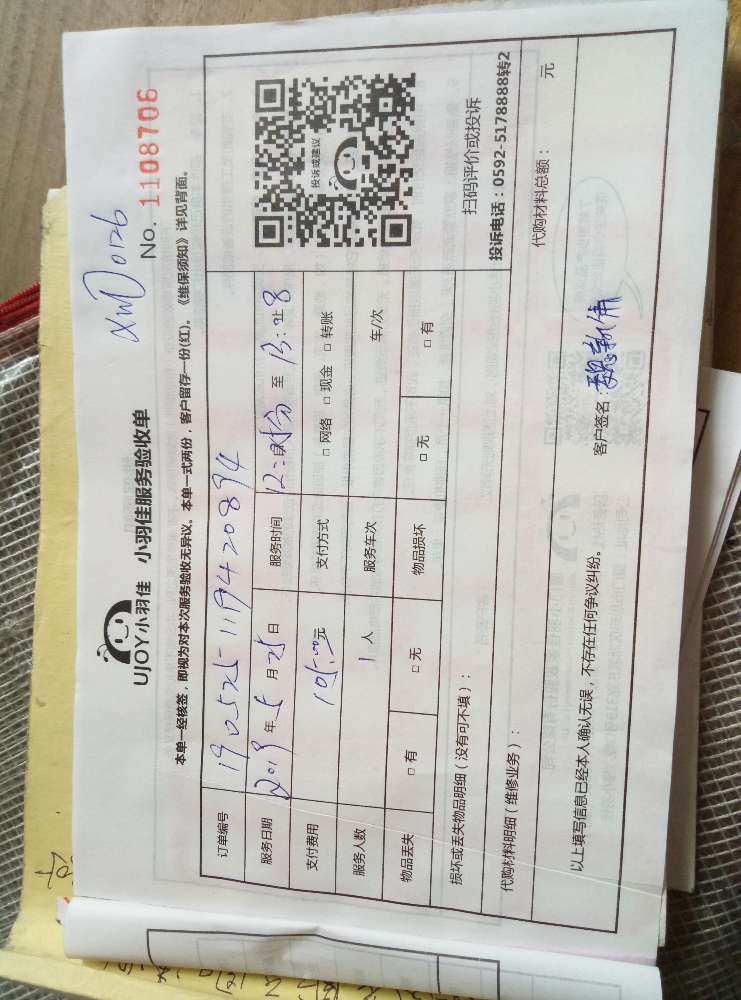 XMD0126
No. 1108706
UJOY小羽佳 小羽佳服务验收单
本单一经核签，即视为对本次服务验收无异议。本单一式两份，客户留存一份(红)。《维保须知》详见背面。
订单编号 190525119420894
服务日期 2019年5月25日 服务时间 12: 至 13:
支付费用 105.00元 支付方式 □ 网络 □ 现金 □ 转账
服务人数 1 人 服务车次 车/次
物品丢失 □ 有 □ 无 物品损坏 □ 无 □ 有
投诉或建议
扫码评价或投诉
投诉电话：0592-5178888转2
损坏或丢失物品明细（没有可不填）：
代购材料明细（维修业务）： 代购材料总额： 元
以上填写信息已经本人确认无误，不存在任何争议纠纷。 客户签名：